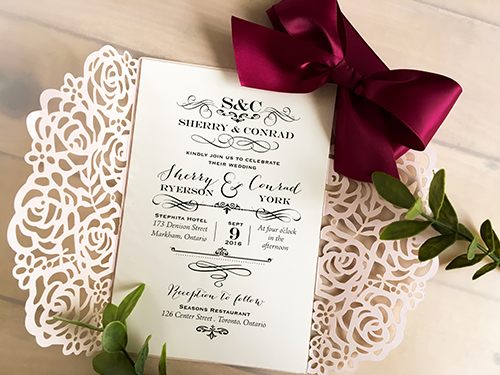 S&C
SHERRY & CONRAD
KINDLY JOIN US TO CELEBRATE
THEIR WEDDING
Sherry & Conrad
RYERSON YORK
STEPHITA HOTEL
173 Denison Street
Markham, Ontario
SEPT
9
2016
At four o'clock
in the
afternoon
Reception to follow
SEASONS RESTAURANT
126 Center Street . Toronto, Ontario